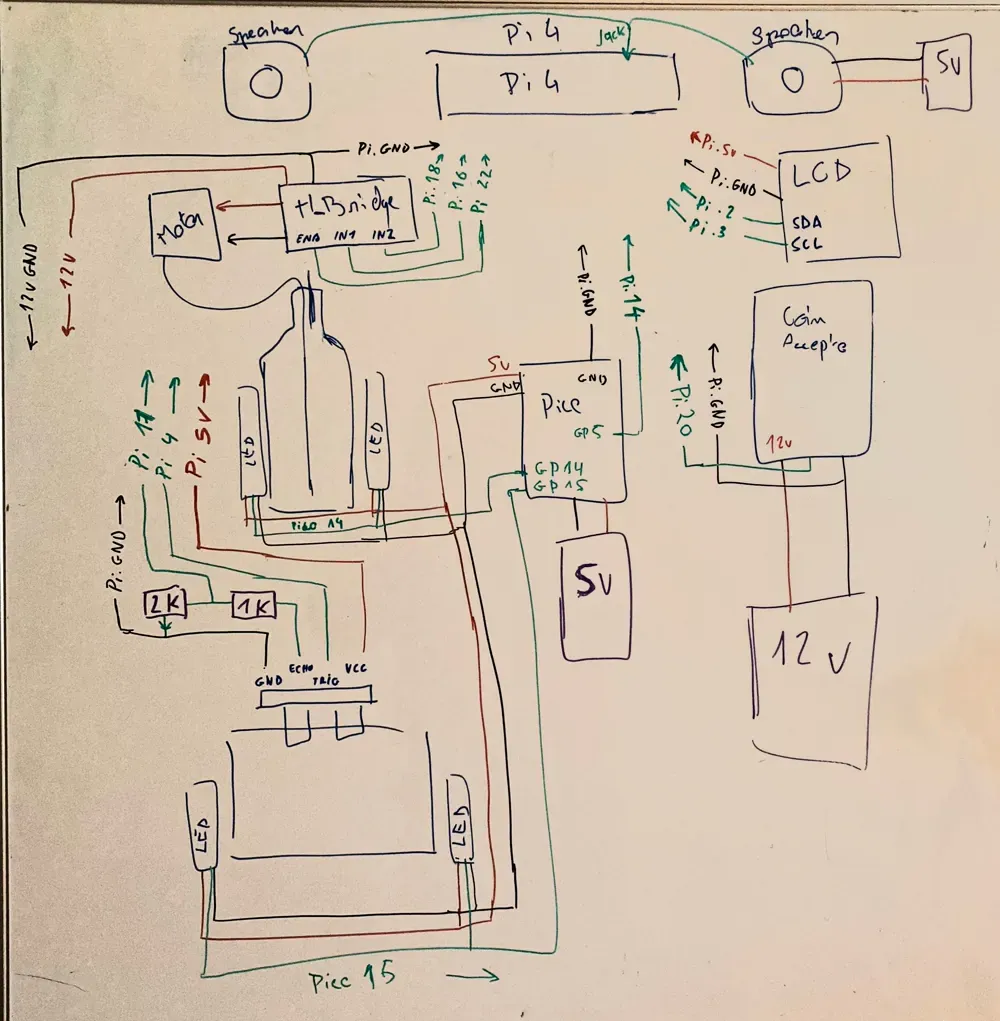 Speaker
Pi 4
jack
Speaker
Pi 4
5V
Pi.GND
Pi.18
Pi.16
Pi.22
Pi.5v
Pi.GND
Pi.2
Pi.3
LCD
SDA
SCL
Motor
HBridge
ENA IN1 IN2
12V GND
12V
Pi.GND
Pi.14
Coin
12V
Pi.20
Pi.GND
5V
GND
GND
Pico
GP5
GP14
GP15
LED
LED
Pico 14
Pi 17
Pi 4
Pi 5V
Pi.GND
2K
1K
5V
12 V
GND
ECHO
TRIG
VCC
LED
LED
Pico 15